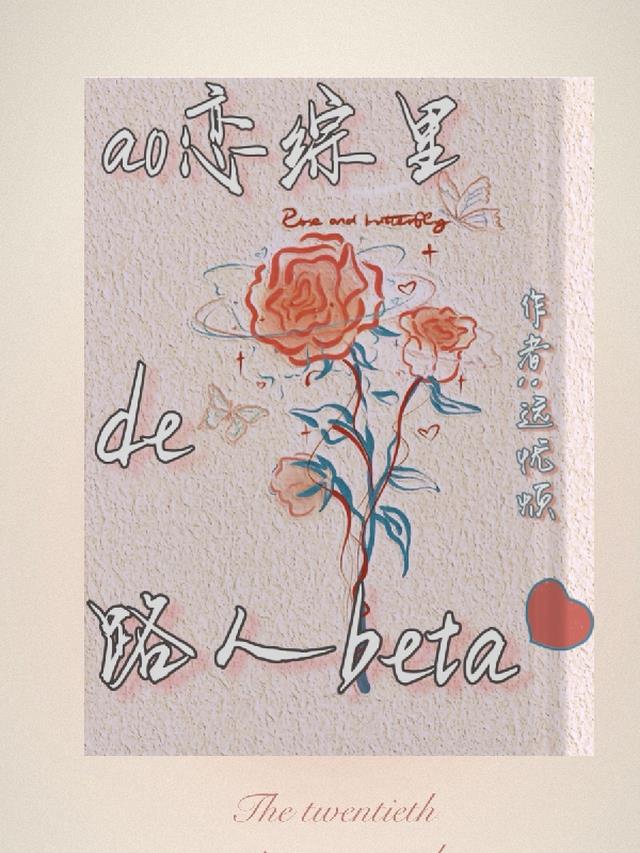 ao恋综里
Rose and butterfly
de
作者：远忧烦
路人beta
The twentieth